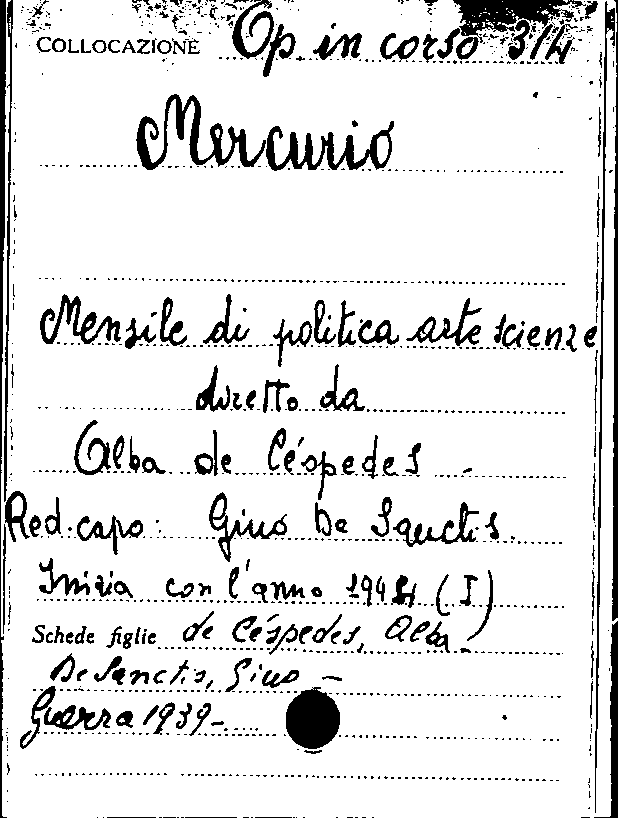 COLLOCAZIONE Op. in corso 3/4
Mercurio
Mensile di politica arte scienze
diretto da
Alba de Céspedes -
Red. capo: Gino De Sanctis.
Inizia con l'anno 1944 (I)
Schede figlie de Céspedes, Alba -
De Sanctis, Gino -
Guerra 1939-